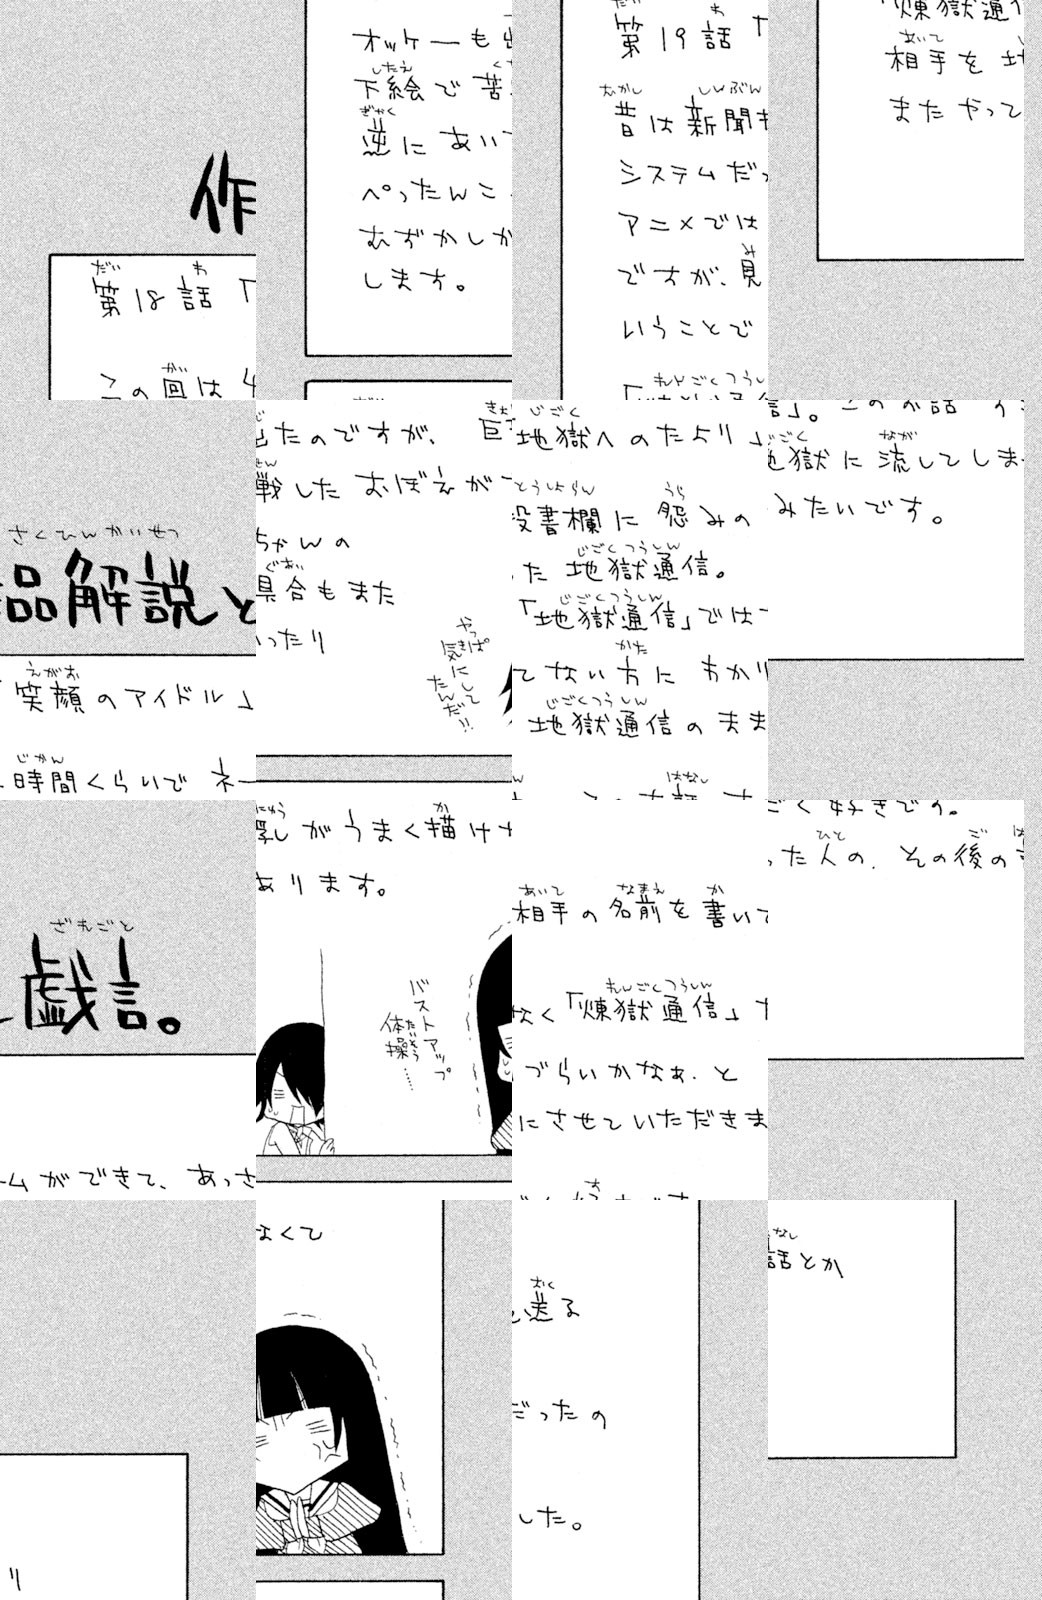 作品解説と戯言。
第18話「笑顔のアイドル」
この回は4時間くらいでネームができて、あっさり
オッケーも出たのですが、巨乳がうまく描けなくて
下絵で苦戦したおぼえがあります。
逆にあいちゃんの
ぺったんこ具合もまた
むずかしかったり
します。
やっぱ気にしてたんだ!!
バストアップ体操……
第19話「地獄へのたより」
昔は新聞投書欄に怨みの相手の名前を書いて送る
システムだった地獄通信。
アニメでは「地獄通信」ではなく「煉獄通信」だったの
ですが、見てない方にわかりづらいかなぁ、と
いうことで地獄通信のままにさせていただきました。
「煉獄通信」。このお話すごく好きです。
相手を地獄に流してしまった人の、その後の話とか
またやってみたいです。